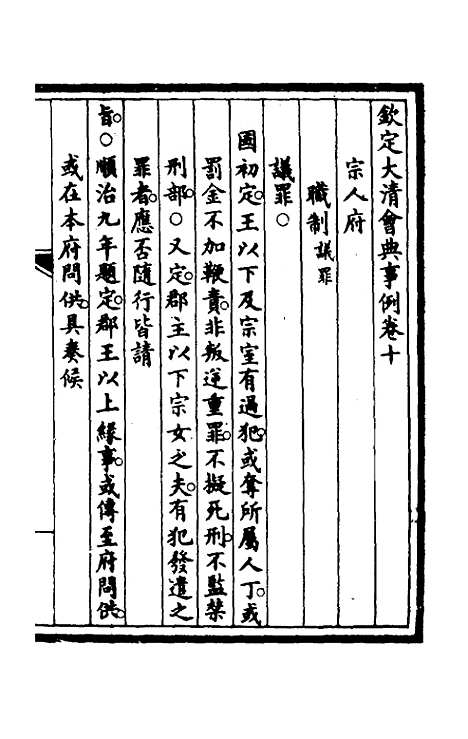 欽定大清會典事例卷十
宗人府
職制議罪
議罪○
國初定。王以下及宗室有過犯。或奪所屬人丁。或
罰金不加鞭責。非叛逆重罪。不擬死刑。不監禁
刑部。○又定。郡主以下宗女之夫。有犯發遣之
罪者。應否隨行皆請
旨。○順治九年題定。郡王以上緣事。或傳至府問供。
或在本府問供。具奏候